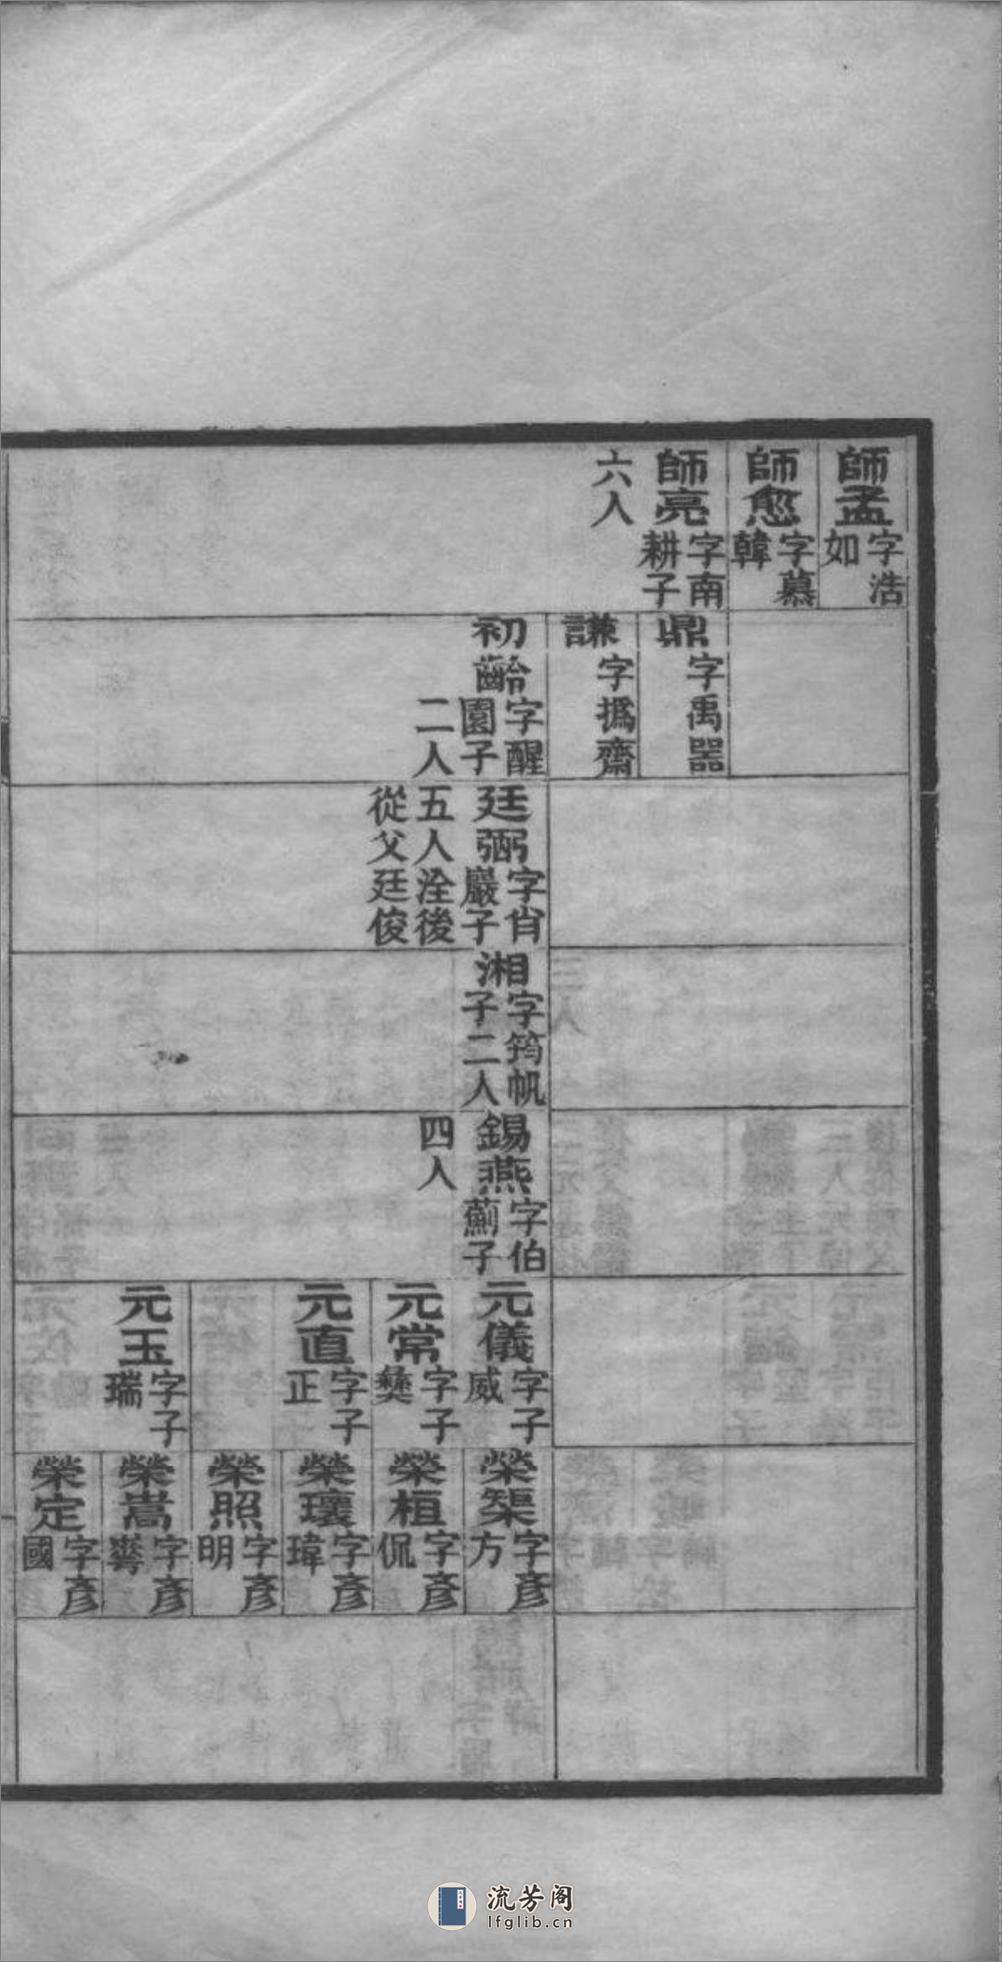 師孟字浩如
師愈字慕韓
師亮字南耕子六人
鼎字禹器
謙字撝齋
初齡字醒園子二人
廷弼字肖巖子五人洤後從父廷俊
湘字筠帆子二人
錫燕字伯薊子四人
元儀字子威
元常字子彝
元直字子正
元玉字子瑞
榮榘字彥方
榮桓字彥侃
榮瓌字彥瑋
榮照字彥明
榮嵩字彥
榮定字彥國
流芳阁
lfglib.cn